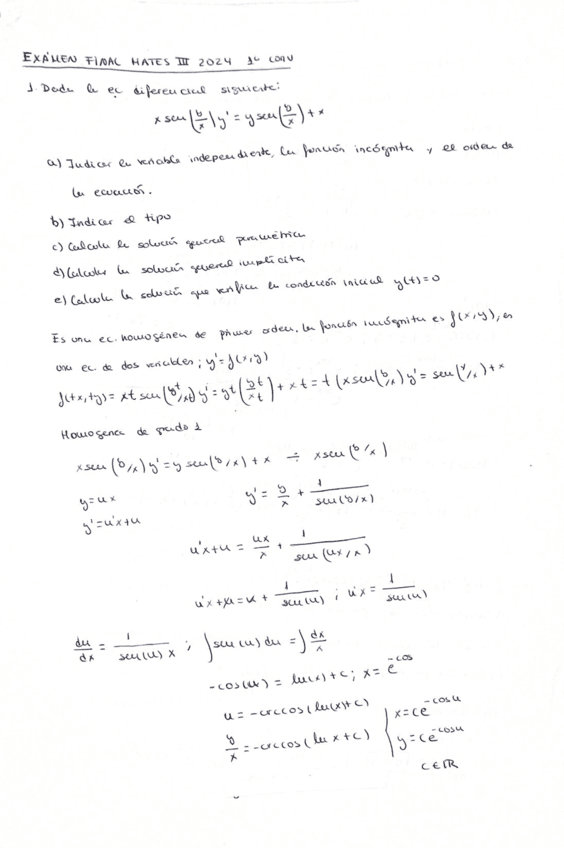 EXÁMEN FINAL MATES III 2024 1ª CONV
1. Dada la ec diferencial siguiente:
x sen(y/x) y' = y sen(y/x) + x
a) Indicar la variable independiente, la función incógnita y el orden de
la ecuación.
b) Indicar el tipo
c) Calcula la solución general paramétrica
d) Calcular la solución general implícita
e) Calcula la solución que verifica la condición inicial y(1)=0
Es una ec. homogénea de primer orden, la función incógnita es f(x,y), es
una ec. de dos variables; y'=f(x,y)
f(tx,ty) = xt sen(yt/xt) y' = yt(yt/xt) + xt = t(x sen(y/x) y' = sen(y/x) + x
Homogenea de grado 1
x sen(y/x) y' = y sen(y/x) + x ÷ x sen(y/x)
y=ux y' = y/x + 1/sen(y/x)
y'=u'x+u
u'x+u = ux/x + 1/sen(ux/x)
u'x+u = u + 1/sen(u) ; u'x = 1/sen(u)
du/dx = 1/sen(u)x ; ∫sen(u) du = ∫dx/x
-cos(u) = ln(x)+c ; x = e^-cos
u = -arccos(ln(x)+c) x=ce^-cosu
y/x = -arccos(ln x+c) y=ce^-cosu
C∈ℝ